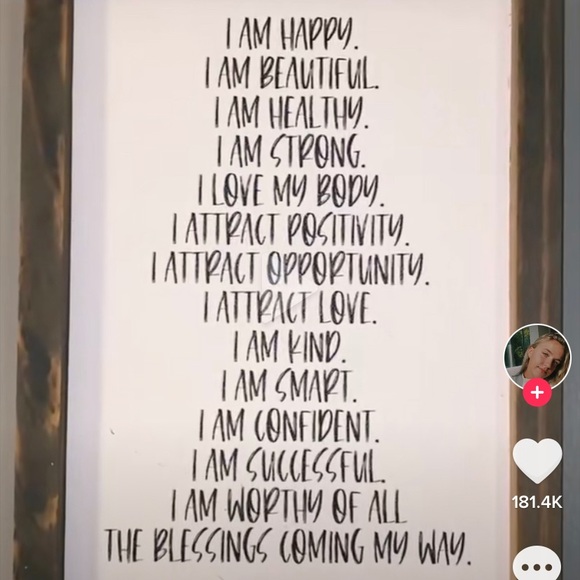 I AM HAPPY.
I AM BEAUTIFUL.
I AM HEALTHY.
I AM STRONG.
I LOVE MY BODY.
I ATTRACT POSITIVITY.
I ATTRACT OPPORTUNITY.
I ATTRACT LOVE.
I AM KIND.
I AM SMART.
I AM CONFIDENT.
I AM SUCCESSFUL.
I AM WORTHY OF ALL
THE BLESSINGS COMING MY WAY.
181.4K